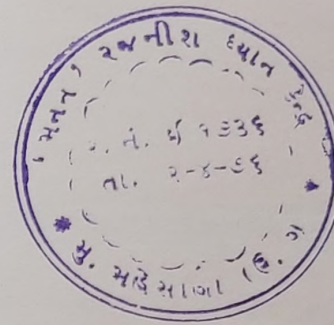 'મનન' રજનીશ ધ્યાન કેન્દ્ર
ર. નં. ઈ ૧૩૩૬
તા. ૨-૪-૭૬
* મુ. મહેસાણા (ઉ. ગુ